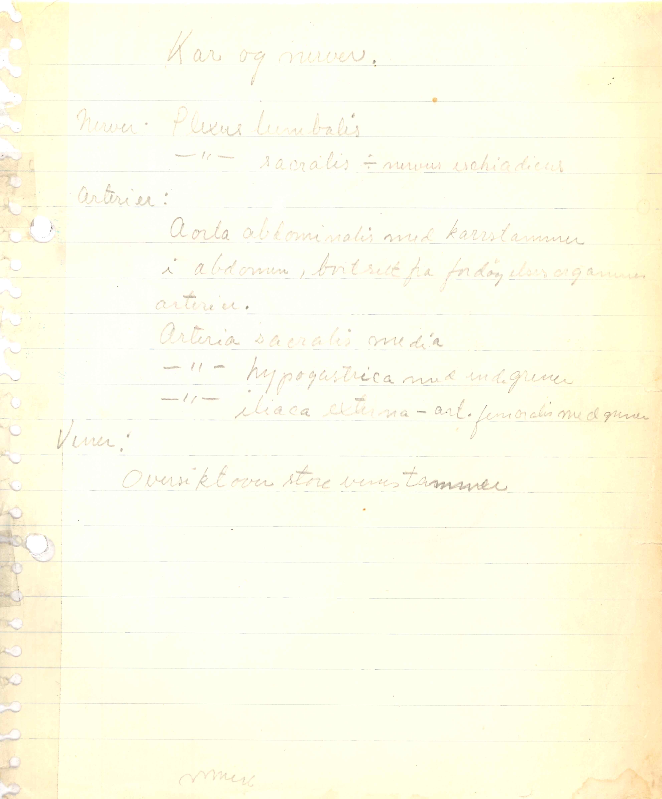 Kar og nerver.
Nerver. Plexus lumbalis
—"— sacralis ÷ nervus ischiadicus
Arterier:
Aorta abdominalis med karrstammer
i abdomen, bortsett fra fordøyelsesorganenes
arterier.
Arteria sacralis media
—"— hypogastrica med endegrener
—"— iliaca externa – art. femoralis med grener
Vener:
Oversikt over store venestammer